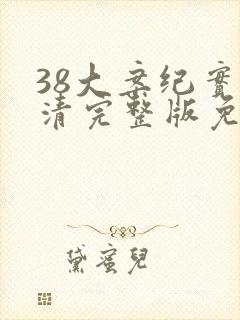 38大案纪實
清完整版免
黛蜜兒